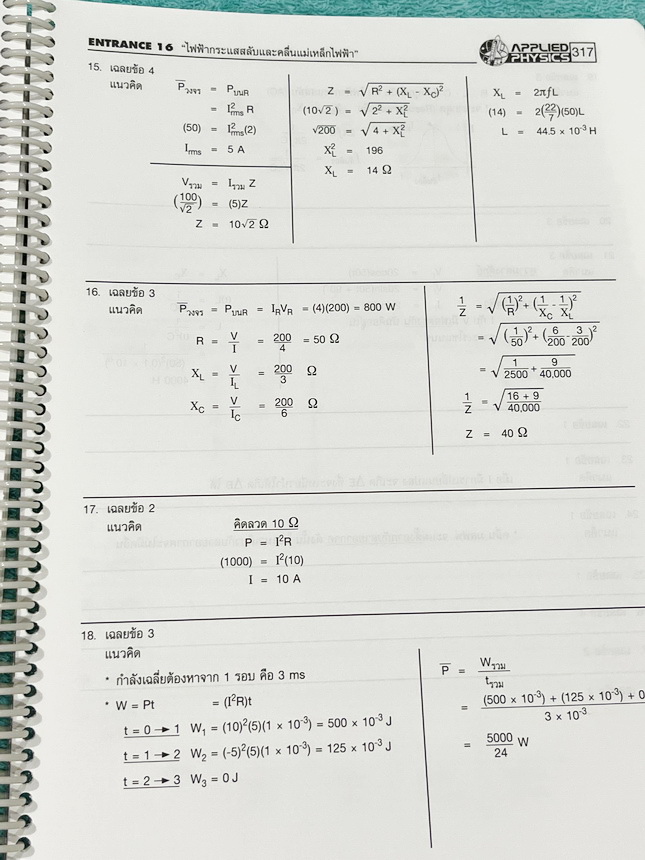 ENTRANCE 16 "ไฟฟ้ากระแสสลับและคลื่นแม่เหล็กไฟฟ้า"
APPLIED PHYSICS 317
15. เฉลยข้อ 4
แนวคิด
P̅วงจร = PบนR
= I²rms R
(50) = I²rms(2)
Irms = 5 A
Vรวม = Iรวม Z
(100/√2) = (5)Z
Z = 10√2 Ω
Z = √(R² + (XL - XC)²)
(10√2) = √(2² + X²L)
√200 = √(4 + X²L)
X²L = 196
XL = 14 Ω
XL = 2πfL
(14) = 2(22/7)(50)L
L = 44.5 × 10⁻³ H
16. เฉลยข้อ 3
แนวคิด
P̅วงจร = PบนR = IRVR = (4)(200) = 800 W
R = V/I = 200/4 = 50 Ω
XL = V/IL = 200/3 Ω
XC = V/IC = 200/6 Ω
1/Z = √((1/R)² + (1/XC - 1/XL)²)
= √((1/50)² + (6/200 - 3/200)²)
= √(1/2500 + 9/40,000)
1/Z = √((16 + 9)/40,000)
Z = 40 Ω
17. เฉลยข้อ 2
แนวคิด
คิดลวด 10 Ω
P = I²R
(1000) = I²(10)
I = 10 A
18. เฉลยข้อ 3
แนวคิด
* กำลังเฉลี่ยต้องหาจาก 1 รอบ คือ 3 ms
* W = Pt = (I²R)t
t = 0 → 1 W₁ = (10)²(5)(1 × 10⁻³) = 500 × 10⁻³ J
t = 1 → 2 W₂ = (-5)²(5)(1 × 10⁻³) = 125 × 10⁻³ J
t = 2 → 3 W₃ = 0 J
P̅ = Wรวม/tรวม
= (500 × 10⁻³) + (125 × 10⁻³) + 0 / 3 × 10⁻³
= 5000/24 W